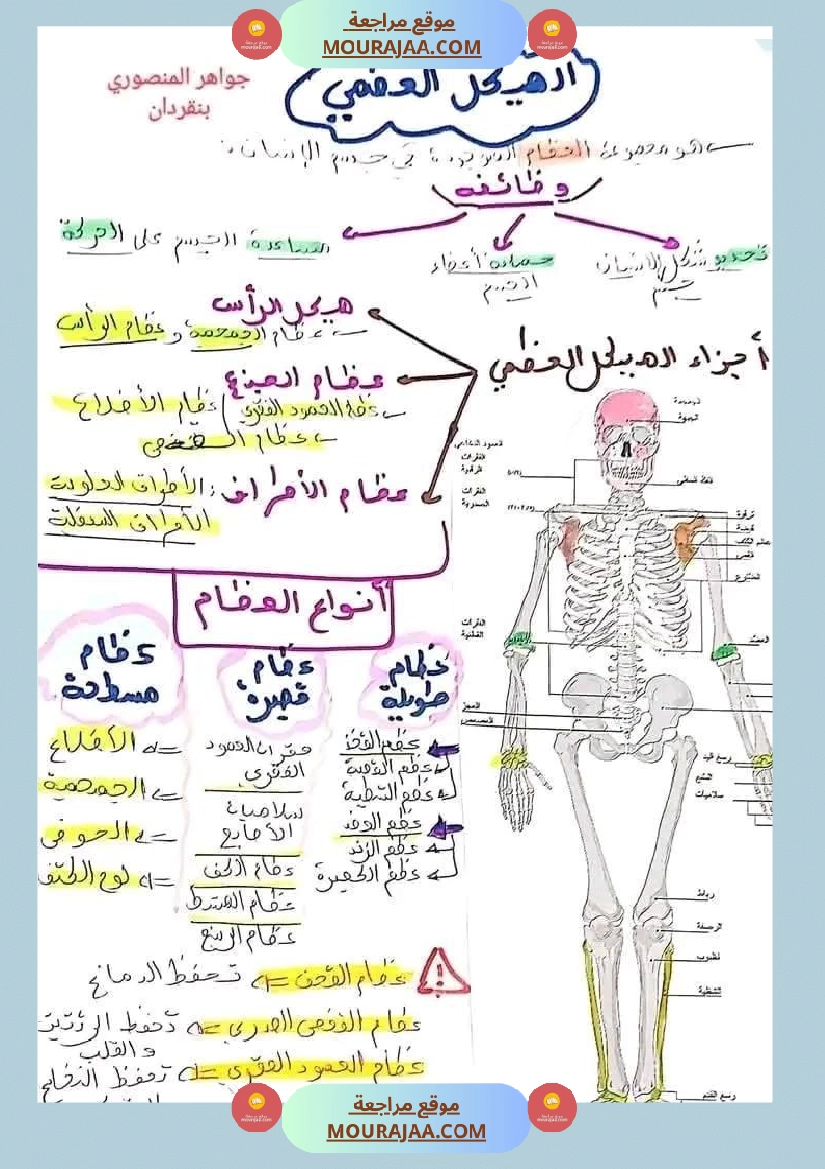 موقع مراجعة
MOURAJAA.COM
جواهر المنصوري
بنقردان
الهيكل العظمي
هو مجموعة العظام الموجودة في جسم الإنسان
وظائفه
تحديد شكل الإنسان
جسم
حماية أعضاء
الجسم
مساعدة الجسم على الحركة
أجزاء الهيكل العظمي
هيكل الرأس
عظام الجمجمة و عظام الرأس
عظام الجذع
عظام العمود الفقري / عظام الأضلاع
عظام
عظام الأطراف: الأطراف العلوية
الأطراف السفلية
أنواع العظام
عظام
طويلة
عظم الفخذ
عظم القصبة
عظم الشظية
عظم العضد
عظم الزند
عظم الكعبرة
عظام
قصيرة
فقرات العمود
الفقري
سلاميات
الأصابع
عظام الكف
عظام المشط
عظام الرسغ
عظام
مسطحة
الأضلاع
الجمجمة
الحوض
لوح الكتف
عظام القحف => تحفظ الدماغ
عظام القفص الصدري => تحفظ الرئتين
والقلب
عظام العمود الفقري => تحفظ النخاع
الجمجمة
الفقرات
الفقرات
الصدرية
ترقوة
الفقرات
القطنية
العضد
العجز
رسغ اليد
المشط
سلاميات
الرضفة
الشظية
رسغ القدم
موقع مراجعة
MOURAJAA.COM